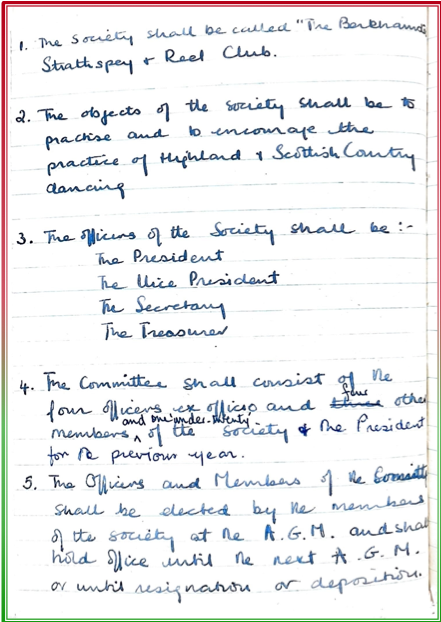 1. The Society shall be called "The Berkhamsted
Strathspey & Reel Club.
2. The objects of the Society shall be to
practise and to encourage the
practice of Highland & Scottish Country
dancing
3. The Officers of the Society shall be :-
The President
The Vice President
The Secretary
The Treasurer
4. The Committee shall consist of the
four
four officers ex officio and three other
and one 'under-twenty'
members of the Society & the President
for the previous year.
5. The Officers and Members of the Committee
shall be elected by the members
of the Society at the A.G.M. and shall
hold office until the next A.G.M.
or until resignation or deposition.